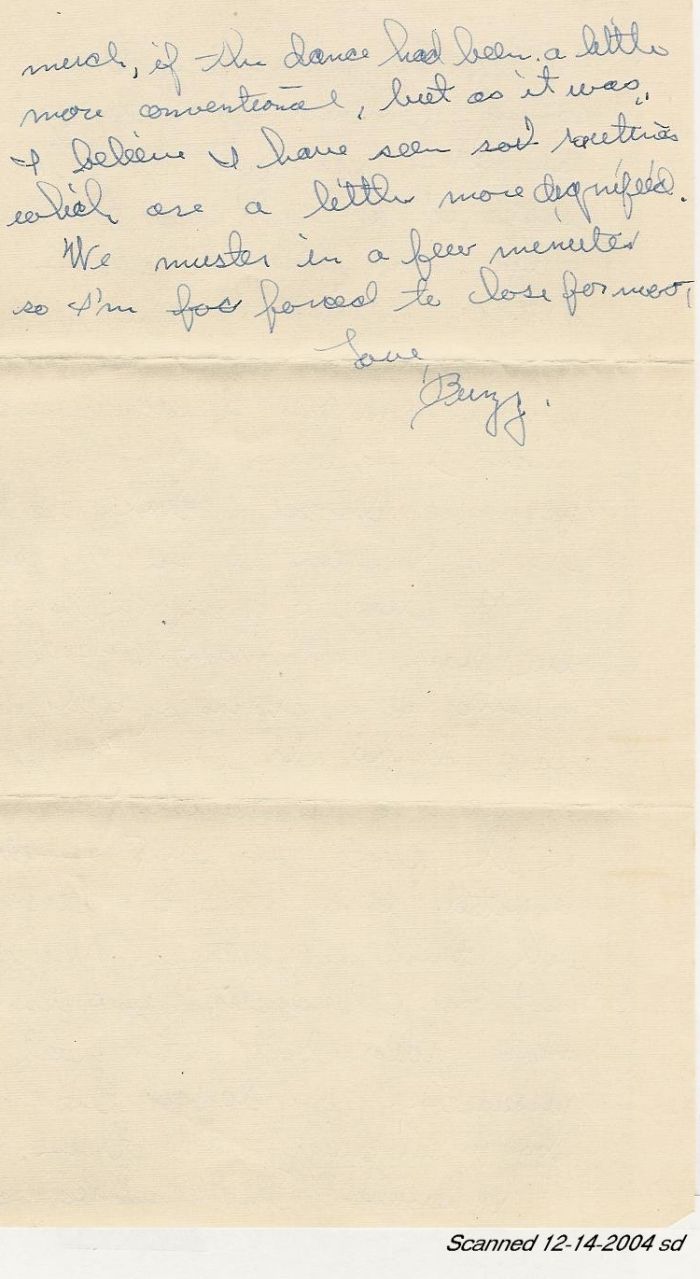 much, if the dance had been a little
more conventional, but as it was,
I believe I have seen routines
which are a little more dignified.
We muster in a few minutes
so I'm forced to close for now,
Love,
Buzz.
Scanned 12-14-2004 sd